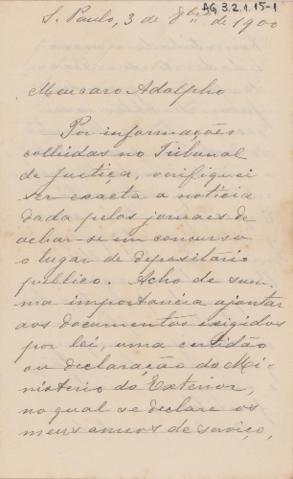 AG 3.2.1.15-1
S. Paulo, 3 de 8bro de 1900
Meu caro Adolpho
Por informações
colhidas no Tribunal
de Justiça, verifiquei
ser exacta a noticia
dada pelos jornaes de
achar-se em concurso
o lugar de depositario
publico. Acho de sum-
ma importancia ajuntar
aos documentos exigidos
por lei, uma certidão
ou declaração do Mi-
nisterio do Exterior,
no qual se declare os
meus annos de serviço,